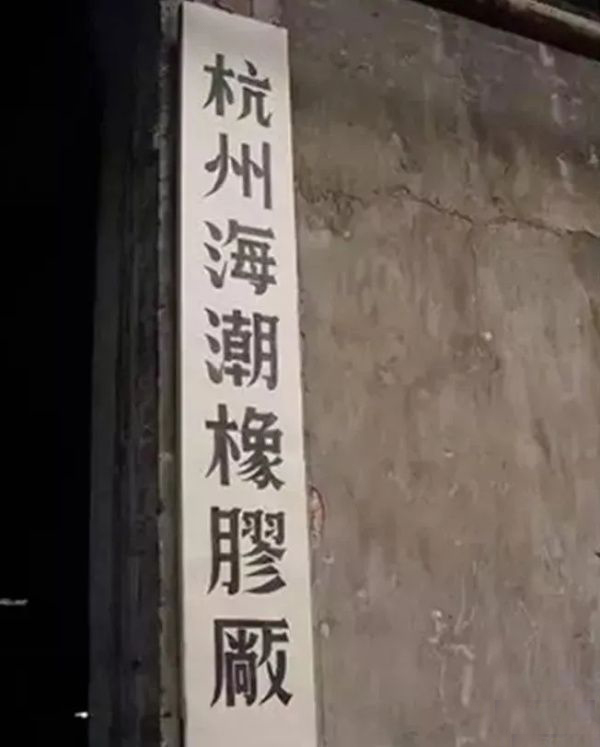 杭州海潮橡膠廠